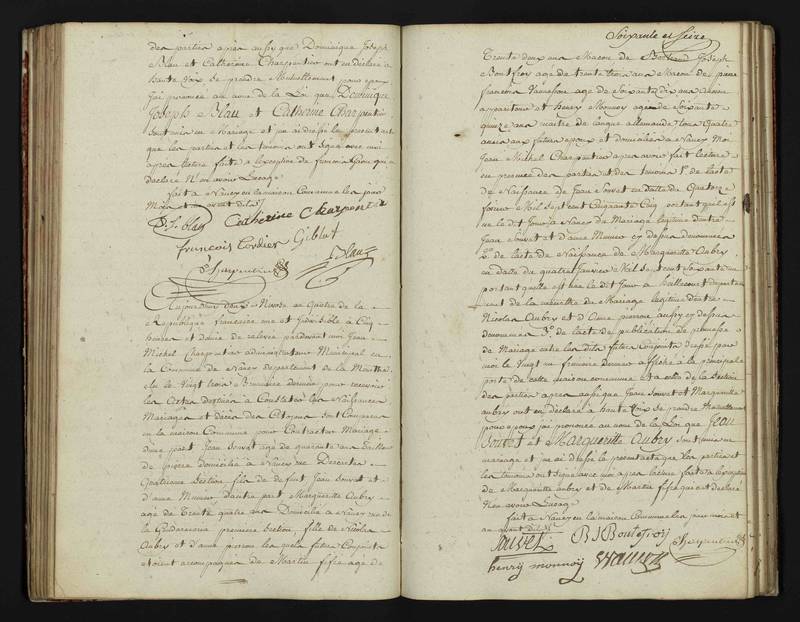 des parties apres aussy que Dominique Joseph
Blau et Catherine Charpentier ont eu declaré a
haute voix se prendre Mutuellement pour epoux
j'ai prononcé au nom de la Loi que Dominique
Joseph Blau et Catherine Charpentier
sont unis en Mariage et j'ai dressé le present acte
que les parties et les temoins ont signé avec moi
apres lecture faite a l'exception de francois qui a
declaré N'en avoir l'usage
fait a Nancy en la maison Commune les jour
Mois et an avant dits
D. J. Blau Catherine Charpentier
francois Cordier Giblut
Blau
Charpentier
Aujourdhuy deux Nivose an Quatre de la
Republique francaise une et Indivisible a Cinq
heures et demie de relevée pardevant moi Jean
Michel Charpentier administrateur Municipal en
la Commune de Nancy departement de la Meurthe
elu le Vingt trois Brumaire dernier pour recevoir
les Actes destinés a Constater les Naissances
Mariages et décès des Citoyens sont Comparus
en la maison Commune pour Contracter Mariage
d'une part Jean Souvet agé de quarante ans Taille
de pierre domicilié a Nancy rue Descartes
Quatrieme Section fils de defunt Jean Souvet et
d'anne Munier d'autre part Margueritte Aubry
agée de Trente quatre ans Domiciliée a Nancy rue de
la premiere Section, fille de Nicolas
Aubry et d'anne pierron les quels futurs Conjoints
etoient accompagnés de Martin fifé agé de
Soixante et Seize
Trente deux ans Macon de Joseph
Bontfroy agé de trente trois ans Macon de pierre
francois agé de Soixante dix ans ancien
appariteur et henry Monnoy agé de Soixante
quinze ans maitre de langue allemande tous Quatre
amis aux futurs epoux et domiciliés a Nancy Moi
Jean Michel Charpentier apres avoir fait lecture
en presence des parties et des temoins 1o de l'acte
de Naissance de Jean Souvet en datte du Quatorze
fevrier Mil Sept cent Cinquante Cinq portant qu'il est
né le dit Jour a Nancy du Mariage legitime d'entre
Jean Souvet et d'anne Munier cy dessus denommés
2o de l'acte de Naissance de Margueritte Aubry
en datte du quatre Janvier Mil Sept cent Soixante un
portant quelle est née le dit Jour a departe
ment de la meurthe du Mariage legitime d'entre
Nicolas Aubry et d'Anne pierron aussy cy dessus
denommés 3o de l'acte de publication de promesse
de Mariage entre les dits futurs Conjoints dressé par
moi le Vingt un frimaire dernier affiché a la principale
porte de cette maison commune et a celle de la Section
des parties apres aussy que Jean Souvet et Margueritte
aubry ont eu declaré a haute voix se prendre Mutuellement
pour epoux j'ai prononcé au nom de la Loi que Jean
Souvet et Margueritte Aubry sont unis en
mariage et j'ai dressé le present acte que les parties et
les temoins ont signé avec moi apres lecture faite a l'exception
de Margueritte aubry et de Martin fifé qui ont declaré
N'en avoir l'usage
fait a Nancy en la maison Commune les jour mois et
an avant dits
Sauvet B J Bontfroy
henry monnoy Charpentier